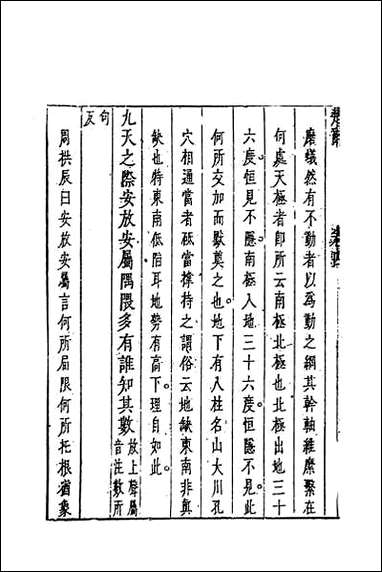 磨蟻然有不動者以為動之綱其幹軸維縻繫在
何處天極者即所云南極北極也北極出地三十
六度恒見不隱南極入地三十六度恒隱不見此
何所交加而獸奠之也地下有八柱名山大川孔
穴相通當者砥當撐持之謂俗云地缺東南非真
缺也特東南低陷耳地勢有高下理自如此
九天之際安放安屬隅隈多有誰知其數放上聲屬
音注數所
句
反
周拱辰曰安放安屬言何所局限何所托根猶象